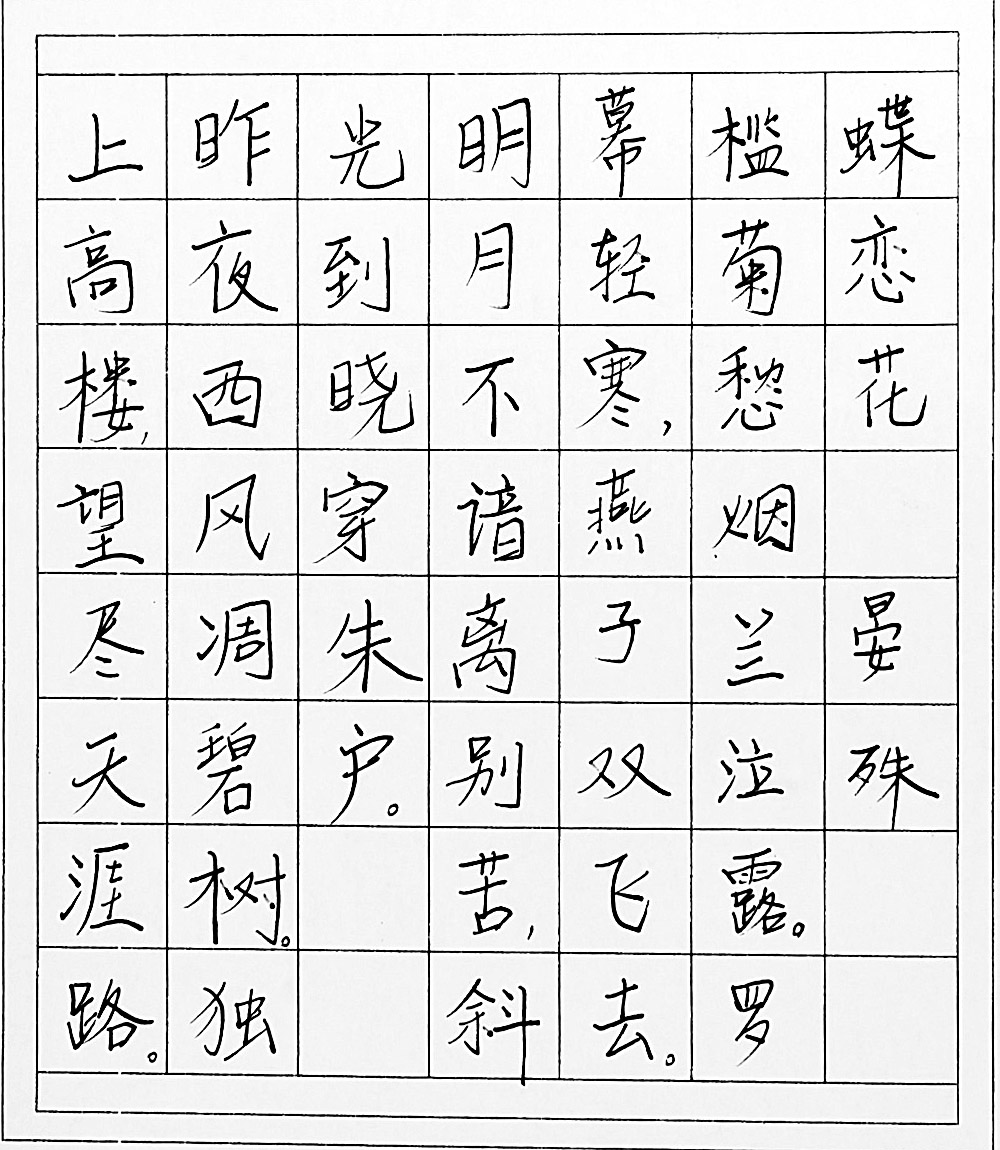 蝶恋花 晏殊
槛菊愁烟兰泣露。罗
幕轻寒，燕子双飞去。
明月不谙离别苦，斜
光到晓穿朱户。
昨夜西风凋碧树。独
上高楼，望尽天涯路。